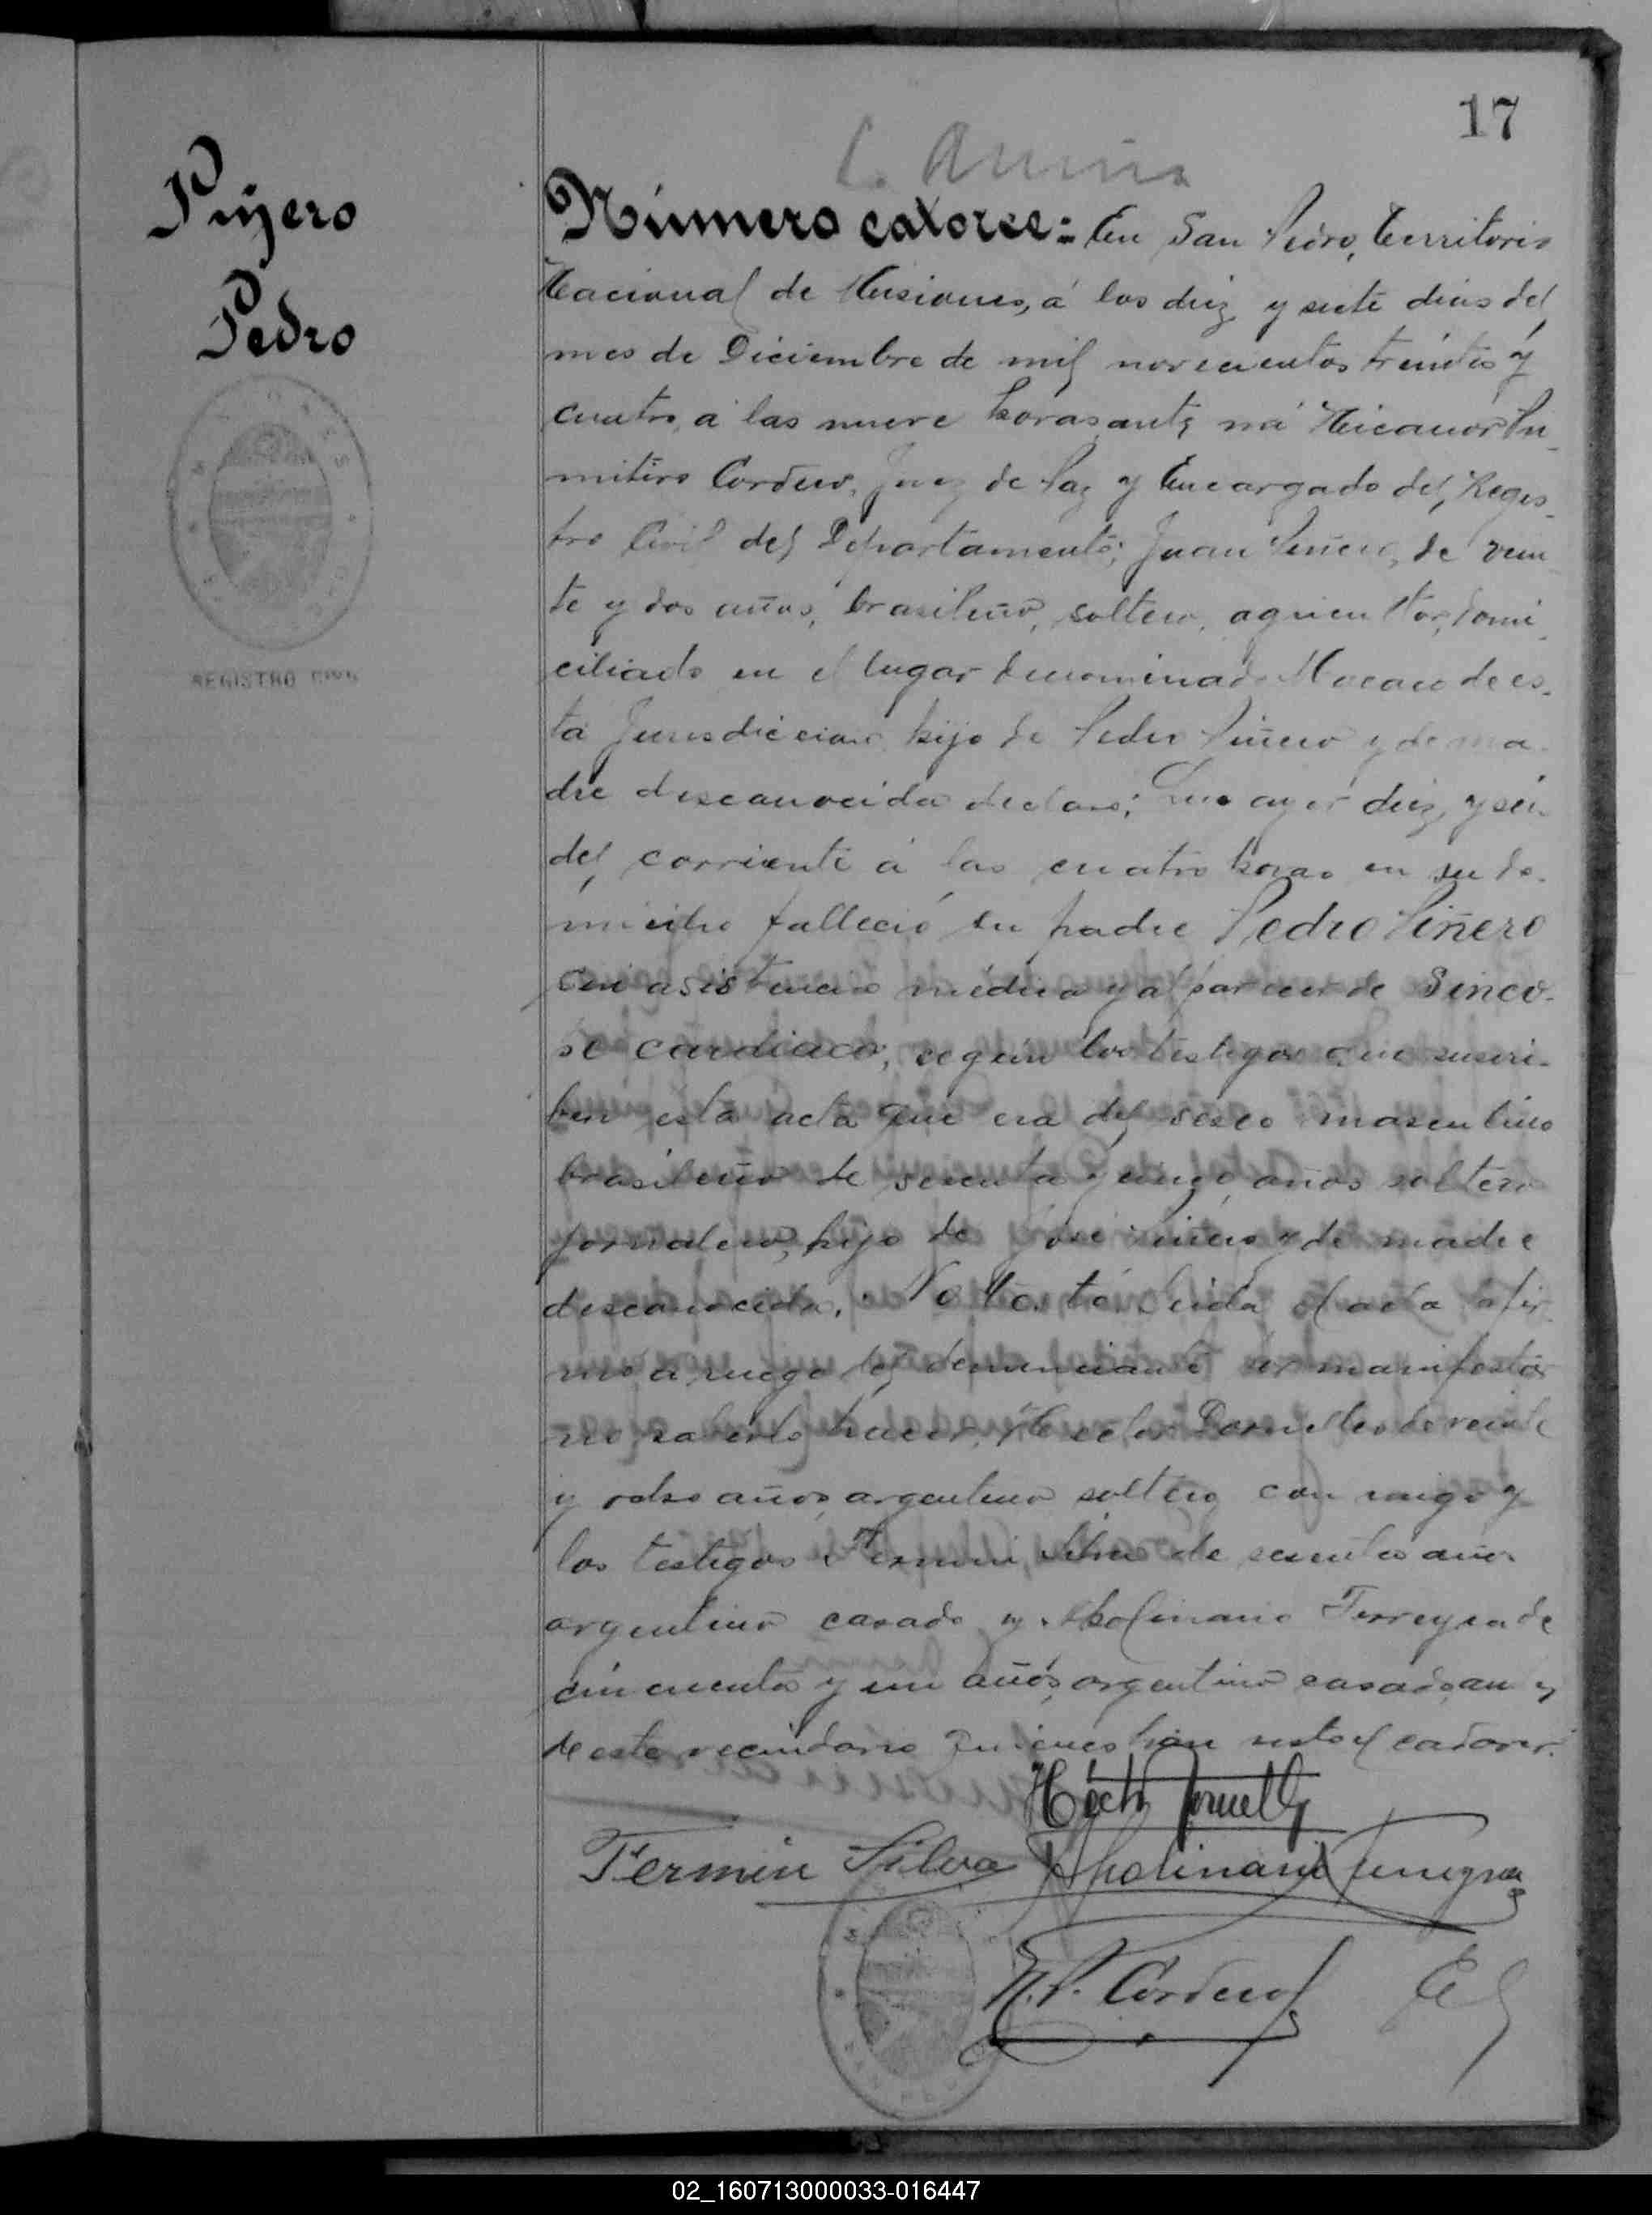 17
Piñero
Pedro
REGISTRO CIVIL
Número catorce: En San Pedro, Territorio
Nacional de Misiones, á los diez y siete dias del
mes de Diciembre de mil novecientos treinta y
cuatro, a las nueve horas, ante mí Nicanor Pri-
mitivo Cordero, Juez de Paz y Encargado del Regis-
tro Civil del Departamento; Juan Piñero, de vein
te y dos años, brasileño, soltero, agricultor, domi
ciliado en el lugar denominado Macaco de es-
ta Jurisdiccion, hijo de Pedro Piñero y de ma-
dre desconocida declaro; Que ayer diez y seis
del corriente á las cuatro horas en su do-
micilio falleció su padre Pedro Piñero
sin asistencia médica y al parecer de Sinco-
se cardiaco, según los testigos que suscri-
ben esta acta que era del sexo masculino
brasileño de sesenta y cinco años soltero
jornalero, hijo de José Piñero y de madre
desconocida. Leida el acta la fir
mó a ruego del denunciante por manifestar
no saberlo hacer, Hector Dornelles de veinte
y ocho años, argentino soltero, con migo y
los testigos Fermin Silva de sesenta años
argentino casado y Apolinario Ferreyra de
cincuenta y un años, argentino casado,
de este vecindario quienes han visto el cadaver.
Héctor
Fermin Silva Apolinario Ferreyra
N. P. Cordero
02_160713000033-016447